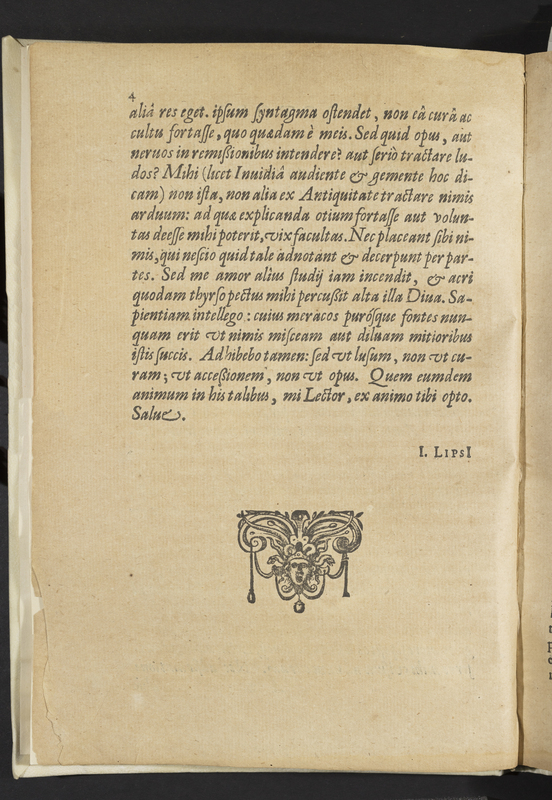 4
aliâ res eget. ipsum syntagma ostendet, non eâ curâ ac
cultu fortasse, quo quædam è meis. Sed quid opus, aut
neruos in remißionibus intendere? aut seriò tractare lu-
dos? Mihi (licet Inuidiâ audiente & gemente hoc di-
cam) non ista, non alia ex Antiquitate tractare nimis
arduum: ad quæ explicanda otium fortasse aut volun-
tas deesse mihi poterit, vix facultas. Nec placeant sibi ni-
mis, qui nescio quid tale adnotant & decerpunt per par-
tes. Sed me amor alius studij iam incendit, & acri
quodam thyrso pectus mihi percußit alta illa Diua. Sa-
pientiam intellego: cuius merácos purósque fontes nun-
quam erit vt nimis misceam aut diluam mitioribus
istis succis. Adhibebo tamen: sed vt lusum, non vt cu-
ram; vt acceßionem, non vt opus. Quem eumdem
animum in his talibus, mi Lector, ex animo tibi opto.
Salue.
I. LIPSI